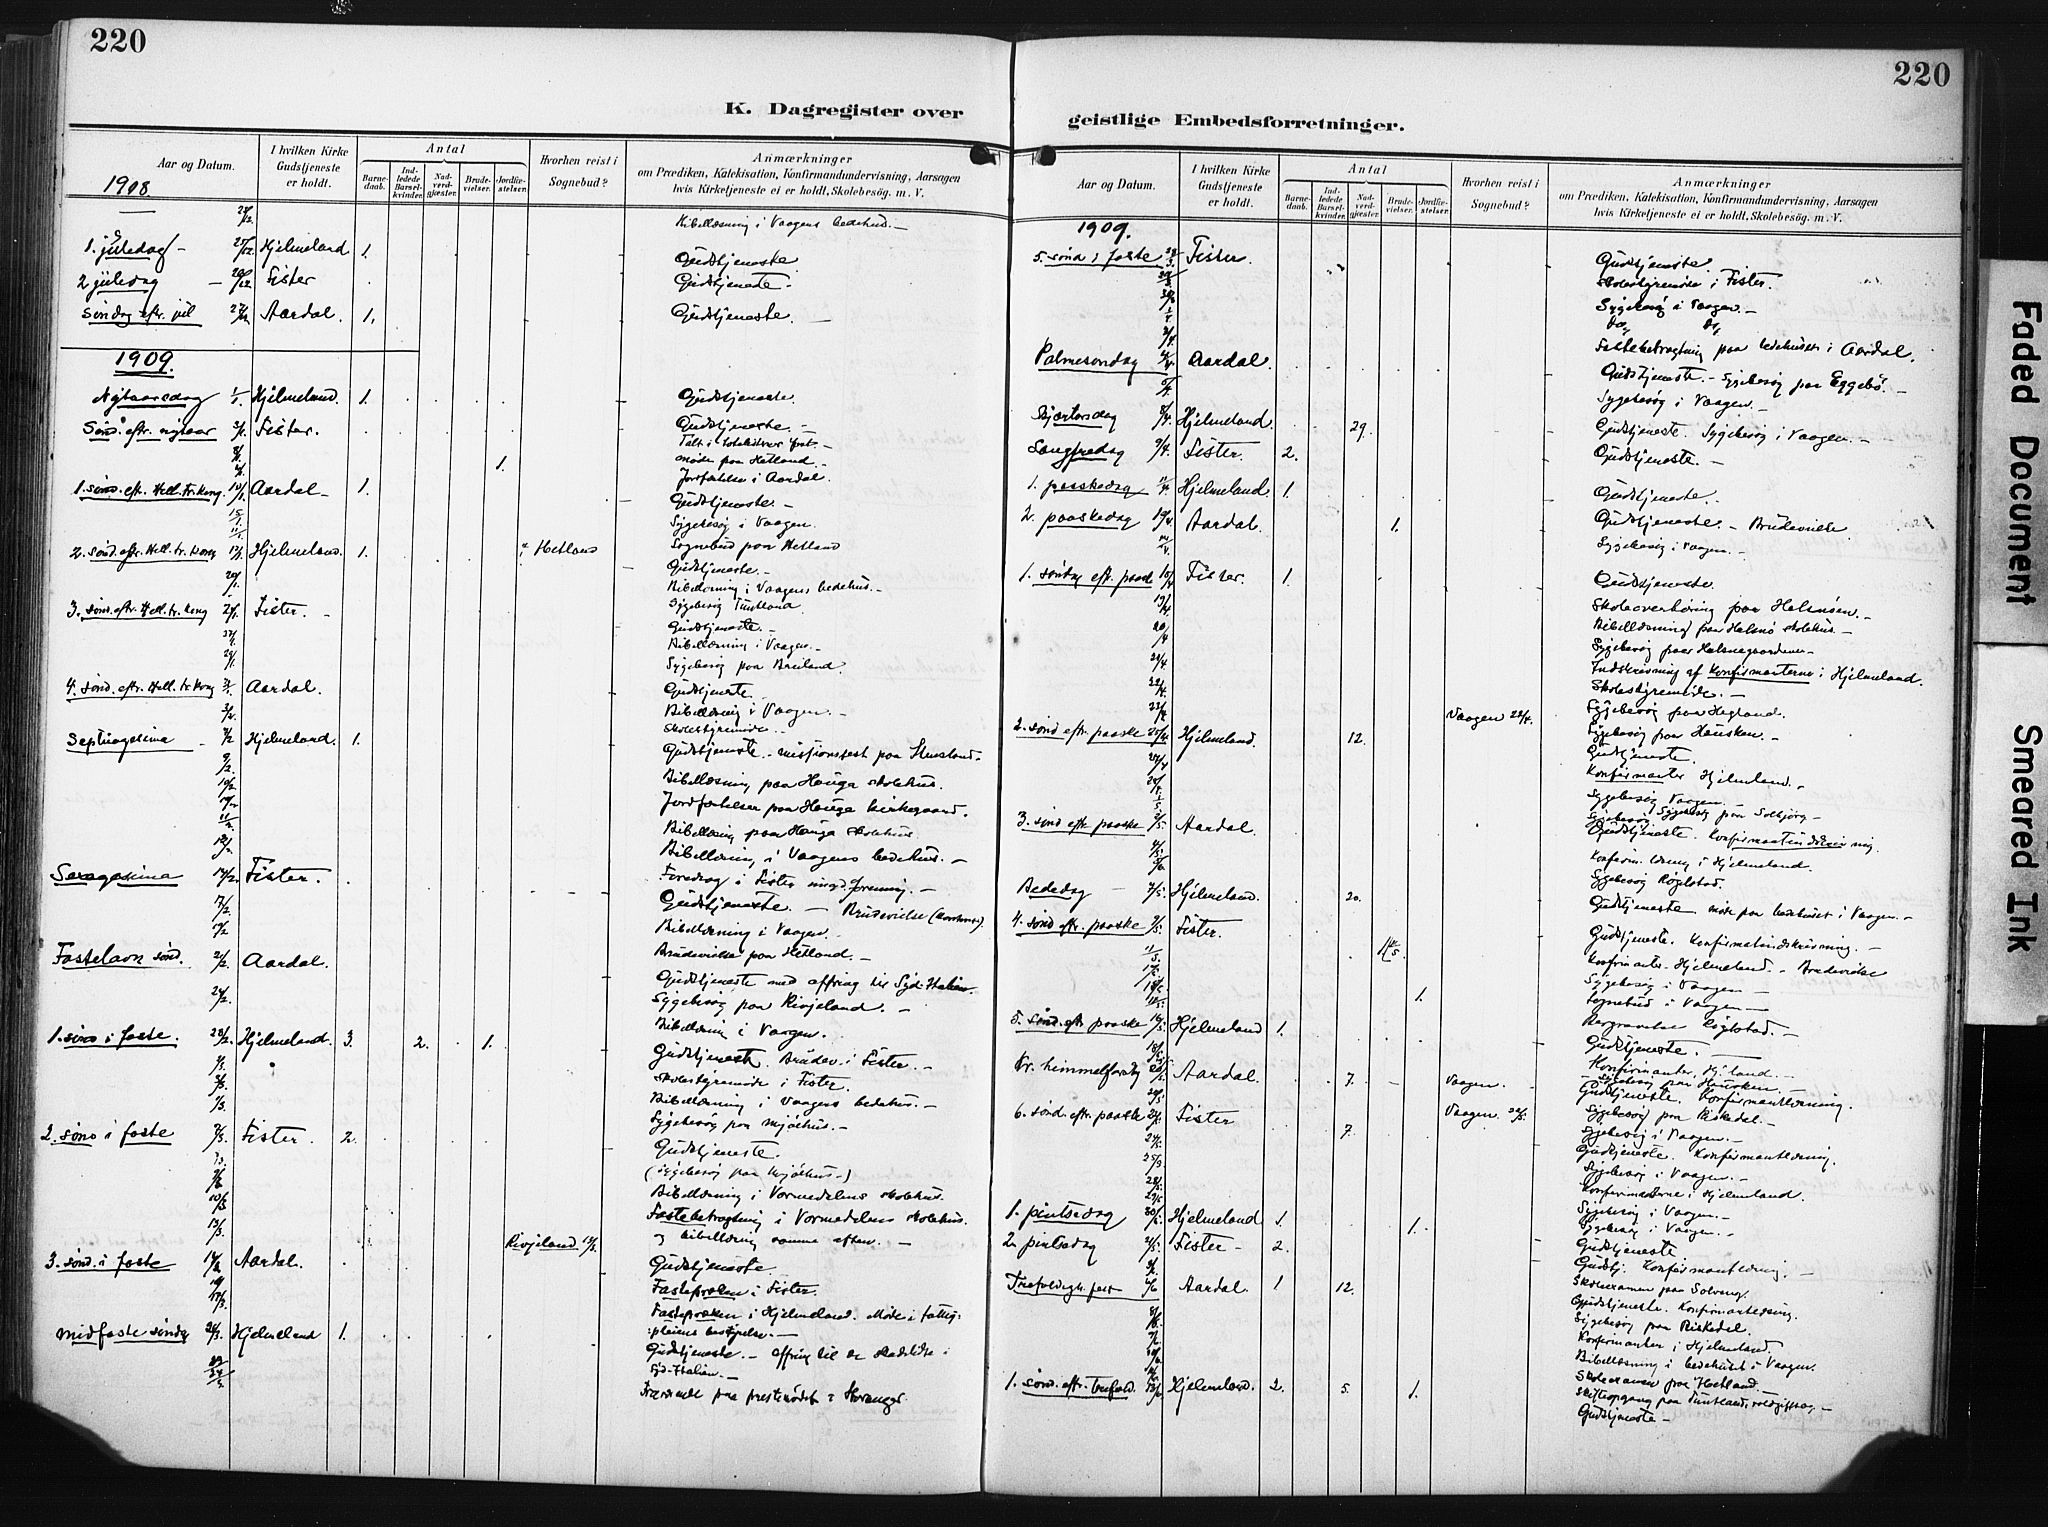 220
K. Dagregister over
Aar og Datum.
I hvilken Kirke Gudstjeneste er holdt.
Antal
Barnedaab.
Indledede Barselkvinder.
Nadverdgjæster.
Brudevielser.
Jordfæstelser.
Hvorhen reist i Sognebud?
Anmærkninger
om Prædiken, Katekisation, Konfirmandundervisning, Aarsagen
hvis Kirketjeneste ei er holdt, Skolebesøg. m. V.
1908.
Bibellæsning i Vaagens bedehus. —
1. juledag — 25/12 Hjelmeland 1. Gudstjeneste
2 juledag — 26/12 Fister Gudstjeneste.
Søndag eftr. jul 27/12 Aardal. 1. Gudstjeneste. —
1909.
Nytaarsdag 1/1 Hjelmeland. 1. Gudstjeneste.
Sønd. eftr. nytaar 3/1 Fister. Gudstjeneste. —
møde paa Hetland. —
1. Jordfæstelse i Aardal.
1. sønd. eftr. Hell. tr. kong. 10/1 Aardal — 1. Gudstjeneste. —
Sygebesøg i Vaagen.
Hetland Sognebud paa Hetland
2. sønd. eftr. Hell. tr. kong 17/1 Hjelmeland. 1. Gudstjeneste. —
20/1 Bibellæsning i Vaagens bedehus. —
Sygebesøg Tuntland.
3. sønd. eftr. Hell. tr. kong 24/1 Fister. — Gudstjeneste. —
27/1 Bibellæsning i Vaagen. —
29/1 Sygebesøg paa Breiland.
4. sønd. eftr. Hell. tr. kong 31/1 Aardal. Gudstjeneste. —
3/2 Bibellæsning i Vaagen. —
Skolestyremøde. —
Septuagesima — 7/2 Hjelmeland. 1. Gudstjeneste. — missionsfest paa
9/2 Bibellæsning paa Hauga skolehus.
10/2 Jordfæstelser paa Hauga kirkegaard.
Bibellæsning paa Hauga skolehus
Bibellæsning i Vaagens bedehus. —
Foredrag i Fister ungd. forening. —
Sexagesima 14/2 Fister. Gudstjeneste. — Brudevielse
17/2 Bibellæsning i Vaagen. —
Brudevielse paa Hetland. —
Fastelavn sønd. 21/2 Aardal. Gudstjeneste med offring til Syd-Italien.
Sygebesøg paa Rivjeland. —
24/2 Bibellæsning i Vaagen.
1. sønd i faste. 28/2 Hjelmeland. 3. 2. 1. Gudstjeneste. Brudev. i Fister. —
Skolestyremøde i Fister.
Bibellæsning i Vaagens bedehus. —
Sygebesøg paa Mjølhus. —
2. sønd i faste 7/3 Fister. 2. Gudstjeneste.
(Sygebesøg paa Mjølhus —)
Bibellæsning i Vormedalens skolehus.
10/3 Fastebetragtning i Vormedalens skolehus.
og bibellæsning samme aften. —
Rivjeland 13/3
3. sønd. i faste 14/3 Aardal. Gudstjeneste
Fastepræken i Fister.
Fasteprækn i Hjelmeland. Møde i fattigpleiens bestyrelse. —
Midfaste søndag 21/3 Hjelmeland 1. Gudstjeneste. — offring til de skadelidte i
Syd-Italien. —
Fraværende paa prestemødet i Stavanger.
220
geistlige Embedsforretninger.
Aar og Datum.
I hvilken Kirke Gudstjeneste er holdt.
Antal
Barnedaab.
Indledede Barselkvinder.
Nadverdgjæster.
Brudevielser.
Jordfæstelser.
Hvorhen reist i Sognebud?
Anmærkninger
om Prædiken, Katekisation, Konfirmandundervisning, Aarsagen
hvis Kirketjeneste ei er holdt, Skolebesøg. m. V.
1909.
5. sønd i faste 28/3 Fister. Gudstjeneste.
Skolestyremøde i Fister.
Sygebesøg i Vaagen. —
Do, Do,
Fastebetragtning paa bedehuset i Aardal.
Palmesøndag 4/4 Aardal. Gudstjeneste. — Sygebesøg paa Eggebø. —
Sygebesøg i Vaagen. —
Skjærtorsdag 8/4 Hjelmeland. 29. Gudstjeneste. Sygebesøg i Vaagen. —
Langfredag 9/4 Fister. 2. Gudstjeneste. —
1. paaskedag 11/4 Hjelmeland. 1. Gudstjeneste.
2. paaskedag Aardal. 1. Gudstjeneste. — Brudevielse
Sygebesøg i Vaagen. —
1. søndag eftr. paaske Fister. 1. Gudstjeneste.
19/4 Skoleoverhøring paa Helsnøen. —
20/4 Bibellæsning paa Helsnø skolehus. —
Sygebesøg paa Helsnøgaardene. —
Indskrivning af konfirmanterne i Hjelmeland.
22/4 Skolestyremøde. —
Vaagen 22/4. Sygebesøg paa Hegland.
Sygebesøg paa Hausken. —
2. sønd eftr. paaske 25/4 Hjelmeland. 12. Gudstjeneste.
Konfirmanter Hjelmeland. —
Sygebesøg Vaagen. —
Sygebesøg paa Solbjørg —
3. sønd eftr. paaske 2/5 Aardal. Gudstjeneste. Konfirmantindskrivning.
Konfirm. læsning i Hjelmeland.
Sygebesøg Røgelstad.
Bededag — 7/5. Hjelmeland. 20. Gudstjeneste. Møde paa bedehuset i Vaagen. —
4. sønd eftr. paaske 9/5. Fister. Gudstjeneste. Konfirmatindskrivning. —
11/5 Konfirmanter. Hjelmeland. — Brudevielse
Sygebesøg i Vaagen —
Sognebud i Vaagen —
1. Begravelse Røglstad. —
5. sønd. eftr. paaske 16/5 Hjelmeland 1. Gudstjeneste. —
18/5 Konfirmanter, Hj.land. —
Sygebesøg paa Hausken. —
Kr. himmelfartsdag 20/5 Aardal. 7. Vaagen. Gudstjeneste. Konfirmantlæsning.
Sygebesøg paa Riskedal. —
Vaagen Sygebesøg i Vaagen. —
6. sønd. eftr. paaske 23/5 Fister 7. Gudstjeneste. Konfirmantlæsning.
Sygebesøg i Vaagen. —
Konfirmanterne i Hjelmeland.
Sygebesøg i Vaagen. —
Sygebesøg i Vaagen. —
1. pintsedag 30/5 Hjelmeland 1. 1. Gudstjeneste
2. pintsedag 31/5. Fister — 2. Gudstj. Konfirmantlæsning. —
Skoleexamen paa Solvang.
Trefoldigh. fest 6/6 Aardal 1 12. Gudstjeneste. Konfirmantlæsning.
Sygebesøg paa Riskedal.
Konfirmanter i Hjelmeland.
Bibellæsning i bedehuset i Vaagen.
Skoleexamen paa Hetland. —
Skiftopgang paa Tuntland,
1. sønd. eftr. trefold. 13/6 Hjelmeland. 2. 5. 1. Gudstjeneste —
Faded Document
Smeared Ink